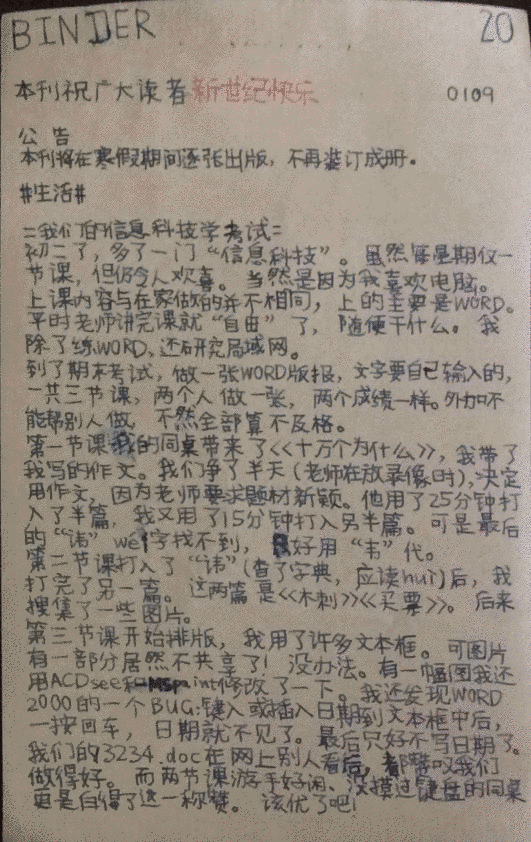 BINDER 20
本刊祝广大读者新世纪快乐 0109
公告
本刊将在寒假期间逐张出版，不再装订成册。
#生活#
=我们的信息科技学考试=
初二了，多了一门“信息科技”。虽然每星期仅一
节课，但仍令人欢喜。当然是因为我喜欢电脑。
上课内容与在家做的并不相同，上的主要是WORD。
平时老师讲完课就“自由”了，随便干什么。我
除了练WORD、还研究局域网。
到了期末考试，做一张WORD版报，文字要自己输入的，
一共三节课，两个人做一张，两个成绩一样。外加不
能帮别人做，不然全部算不及格。
第一节课我的同桌带来了<<十万个为什么>>，我带了
我写的作文。我们争了半天(老师在放录像时)，决定
用作文，因为老师要求题材新颖。他用了25分钟打
入了半篇，我又用了15分钟打入另半篇。可是最后
的“讳”wei字找不到，只好用“韦”代。
第二节课打入了“讳”(查了字典，应读hui)后，我
打完了另一篇。这两篇是<<木刺>><<买票>>。后来
搜集了一些图片。
第三节课开始排版，我用了许多文本框。可图片
有一部分居然不共享了！没办法。有一幅图我还
用ACDsee和MSpaint修改了一下。我还发现WORD
2000的一个BUG:键入或插入日期到文本框中后，
一按回车，日期就不见了。最后只好不写日期了。
我们的3234.doc在网上别人看后，都赞叹我们
做得好。而两节课游手好闲、没摸过键盘的同桌
更是白得了这一称赞。该优了吧！